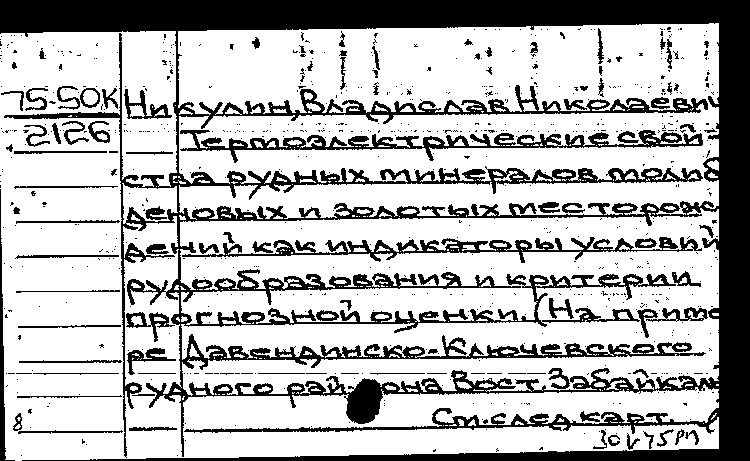 75-50К Никулин, Владислав Николаевич
2126 Термоэлектрические свой-
ства рудных минералов молиб
деновых и золотых месторож
дений как индикаторы условий
рудообразования и критерии
прогнозной оценки. (На приме
ре Давендинско-Ключевского
рудного района Вост. Забайкаль
См. след. карт.
8